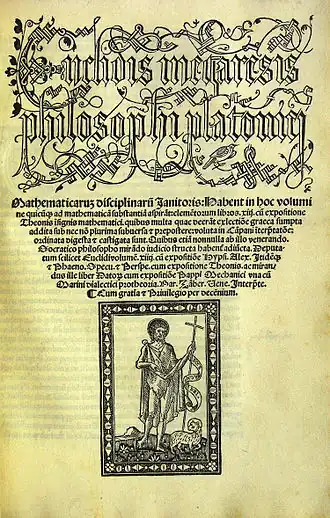 Euclidis megarensis
philosophi platonici
Mathematicaruʒ disciplinarũ Janitoris: Habent in hoc volumi
ne quicũqʒ ad mathematicã substantiã aspirãt: elemẽtorum libros .xiij. cũ expositione
Theonis insignis mathematici. quibus multa quae deerãt ex lectiõe graeca sumpta
addita sub nec nõ plurima subuersa & prepostere: voluta in Cãpani iterpṫatõe:
ordinata digesta & castigata sunt. Quibus etiã nonnulla ab illo venerando.
Socratico philosopho mirãdo iudicio structa habent̃ adiũcta. Deputa-
tum scilicet Euclidi volumẽ .xiiij. cũ expositiõe Hypsi. Alex. Itidẽqʒ
& Phaeno. Specu. & Perspe. cum expositione Theonis. ac miran/
dus ille liber Datorʒ cum expositiõe Pappi Mechanici vna cũ
Marini dialectici protheoria. Bar. Zãber. Vene. Interpte.
Cum gratia & Priuilegio per decenium.